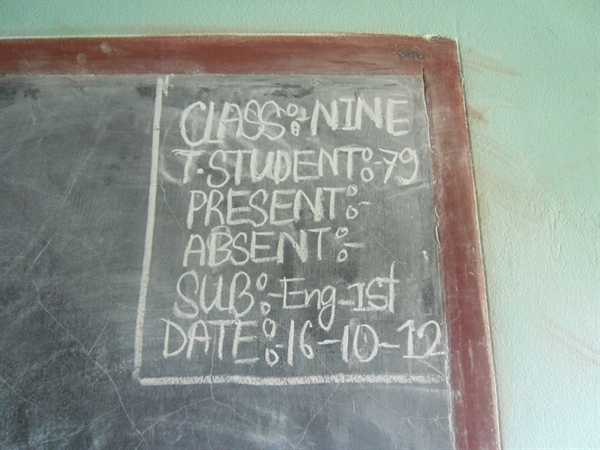 CLASS:-NINE
T.STUDENT:-79
PRESENT:-
ABSENT:-
SUB:-Eng-1st
DATE:-16-10-12